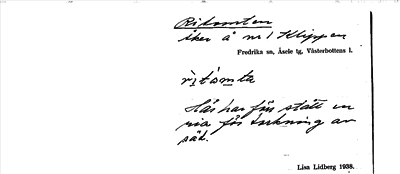 Ritomten
åker å nr 1 Klippen
Fredrika sn, Åsele tg. Västerbottens l.
rìtómta
Här har förr stått en
ria för torkning av
säd.
Lisa Lidberg 1938.